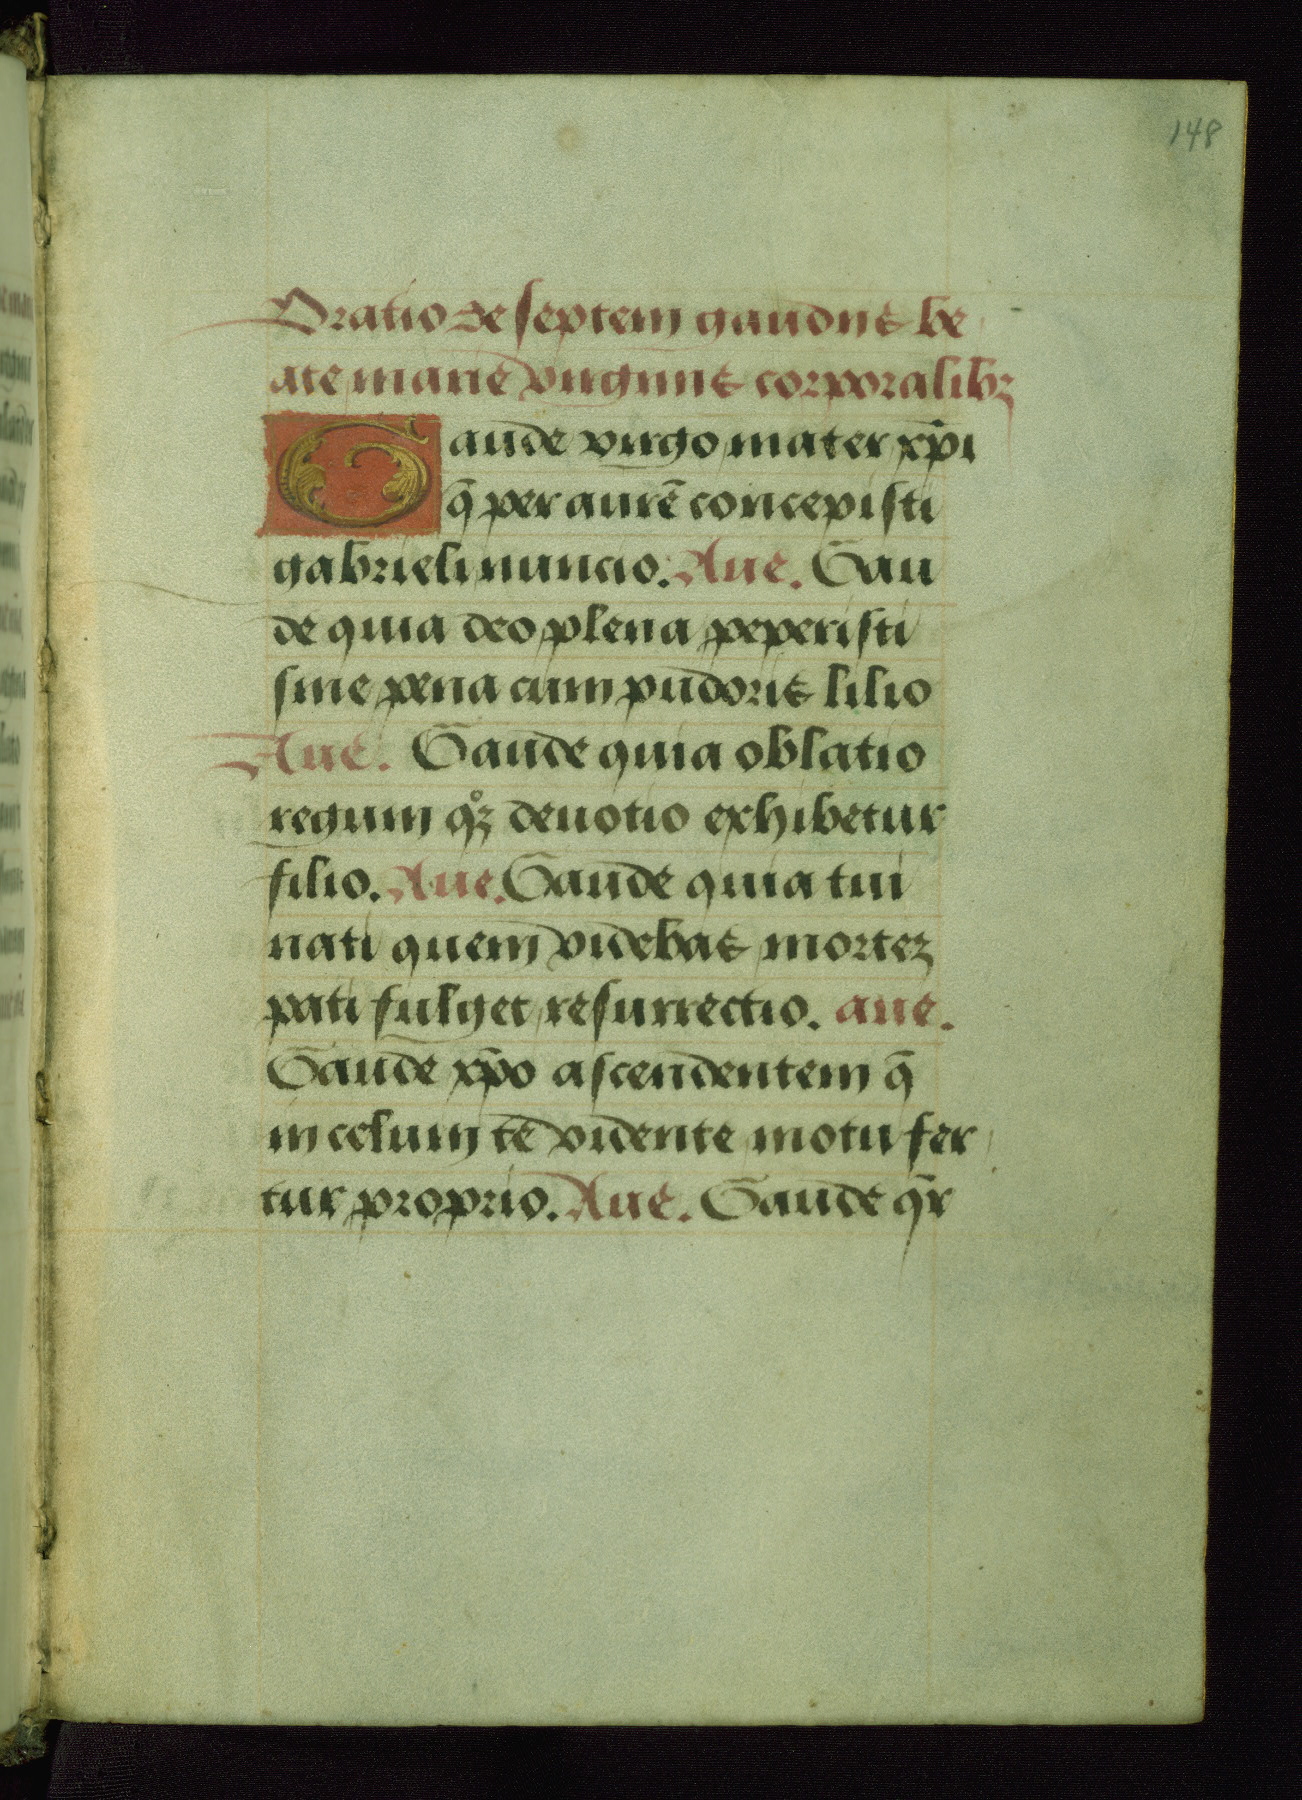 148
Oratio de septem gaudiis be
ate marie virginis corporalibꝫ
Gaude virgo mater xp̄i
q̄ per aurē concepisti
gabrieli nuncio. Aue. Gau
de quia deo plena peperisti
sine pena cum pudoris lilio
Aue. Gaude quia oblatio
regum qͦꝫ deuotio exhibetur
filio. Aue. Gaude quia tui
nati quem videbas mortez
pati fulget resurrectio. aue.
Gaude xp̄o ascendentem q̄
in celum te vidente motu fer
tur proprio. Aue. Gaude q̄r